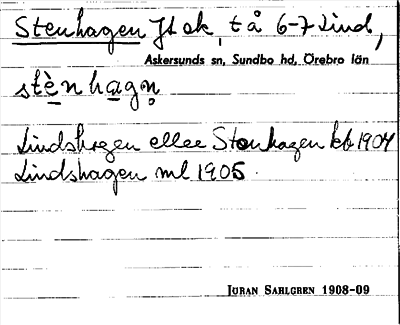 Stenhagen Jl ok, t å 6-7 Lind,
Askersunds sn, Sundbo hd, Örebro län
stènhagn̥
Lindshagen eller Stenhagen kb 1904
Lindshagen ml 1905.
JÖRAN SAHLGREN 1908-09